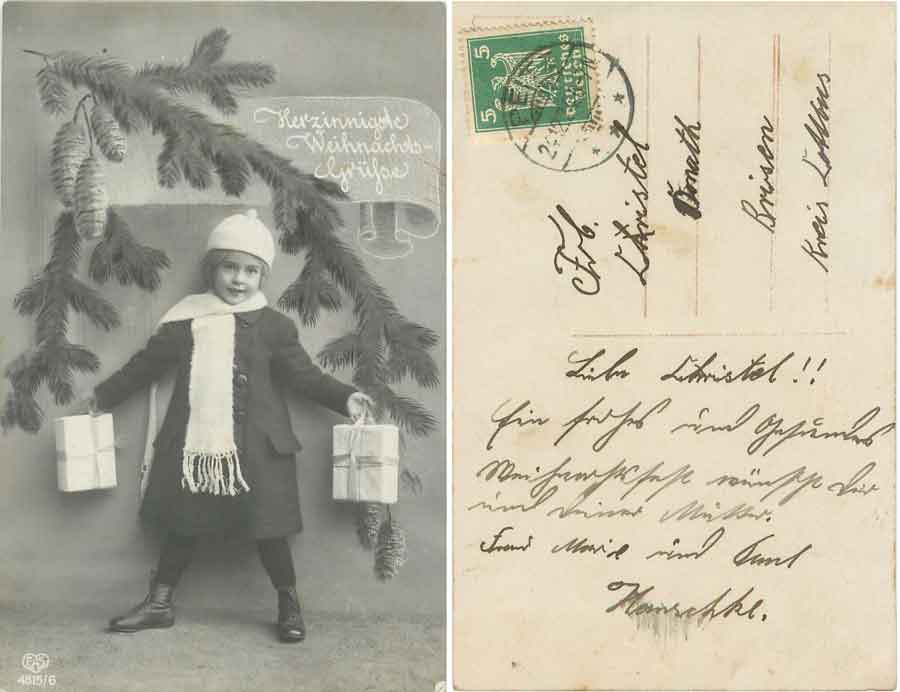 Herzinnigste
Weihnachts-
Grüße
EAS
4815/6
5 5
Deutsches
Reich
Frl.
Christel
Donath
Briesen
Kreis Cottbus
Liebe Christel!!
Ein frohes und Gesundes
Weihnachtsfest wünscht Dir
und deiner Mutter.
Frau Marie und Paul
Hanschke.